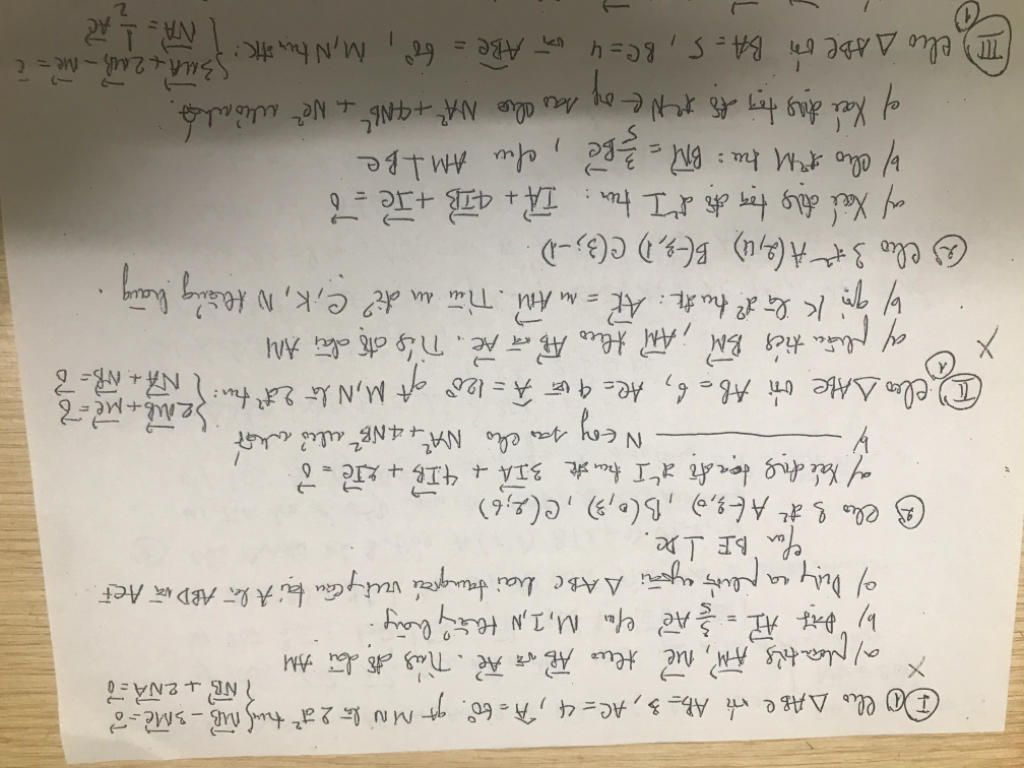 Ⓘ ① Cho △ABC với AB=3, AC=4, Â=60°. gọi M N là 2 đ² t/m { MB⃗ - 3MC⃗ = 0⃗
NB⃗ + 2NA⃗ = 0⃗
a/ phân tích AM⃗, NC⃗ theo AB⃗ và AC⃗. Tính độ dài AM
b/ Đặt AI⃗ = 3/5 AC⃗ c/m M, I, N thẳng hàng.
c/ Dựng ra phía ngoài △ABC hai tam giác vuông cân tại A là ABD và ACF
c/m BF ⊥ DC.
② Cho 3 đ² A(-3,0), B(0,3), C(2,6)
a/ Xác định tọa độ đ² I thỏa đk 3IA⃗ + 4IB⃗ + 2IC⃗ = 0⃗
b/ ——— N ∈ oy sao cho NA² + 4NB² nhỏ nhất
Ⅱ ① Cho △ABC với AB=6, AC=4 và Â=120° gọi M, N là 2 đ² t/m: { 2MB⃗ + MC⃗ = 0⃗
NA⃗ + NB⃗ = 0⃗
a/ phân tích BM⃗, AM⃗ theo AB⃗ và AC⃗. Tính độ dài AM
b/ gọi K là đ² t/m đk: AK⃗ = m AM⃗. Tìm m để C, K, N thẳng hàng.
② Cho 3 đ² A(2,4) B(-3,1) C(3,-1)
a/ Xác định tọa độ đ² I t/m: IA⃗ + 4IB⃗ + IC⃗ = 0⃗
b/ Cho đ² M t/m: BM⃗ = 3/5 BC⃗, c/m AM ⊥ BC
c/ Xác định tọa độ đ² N ∈ oy sao cho NA² + 4NB² + NC² nhỏ nhất.
Ⅲ ① Cho △ABC với BA=5, BC=4 và ABC = 60°, M, N t/m đk: { 3MA⃗ + 2MB⃗ - MC⃗ = 0⃗
NA⃗ = 1/2 AC⃗